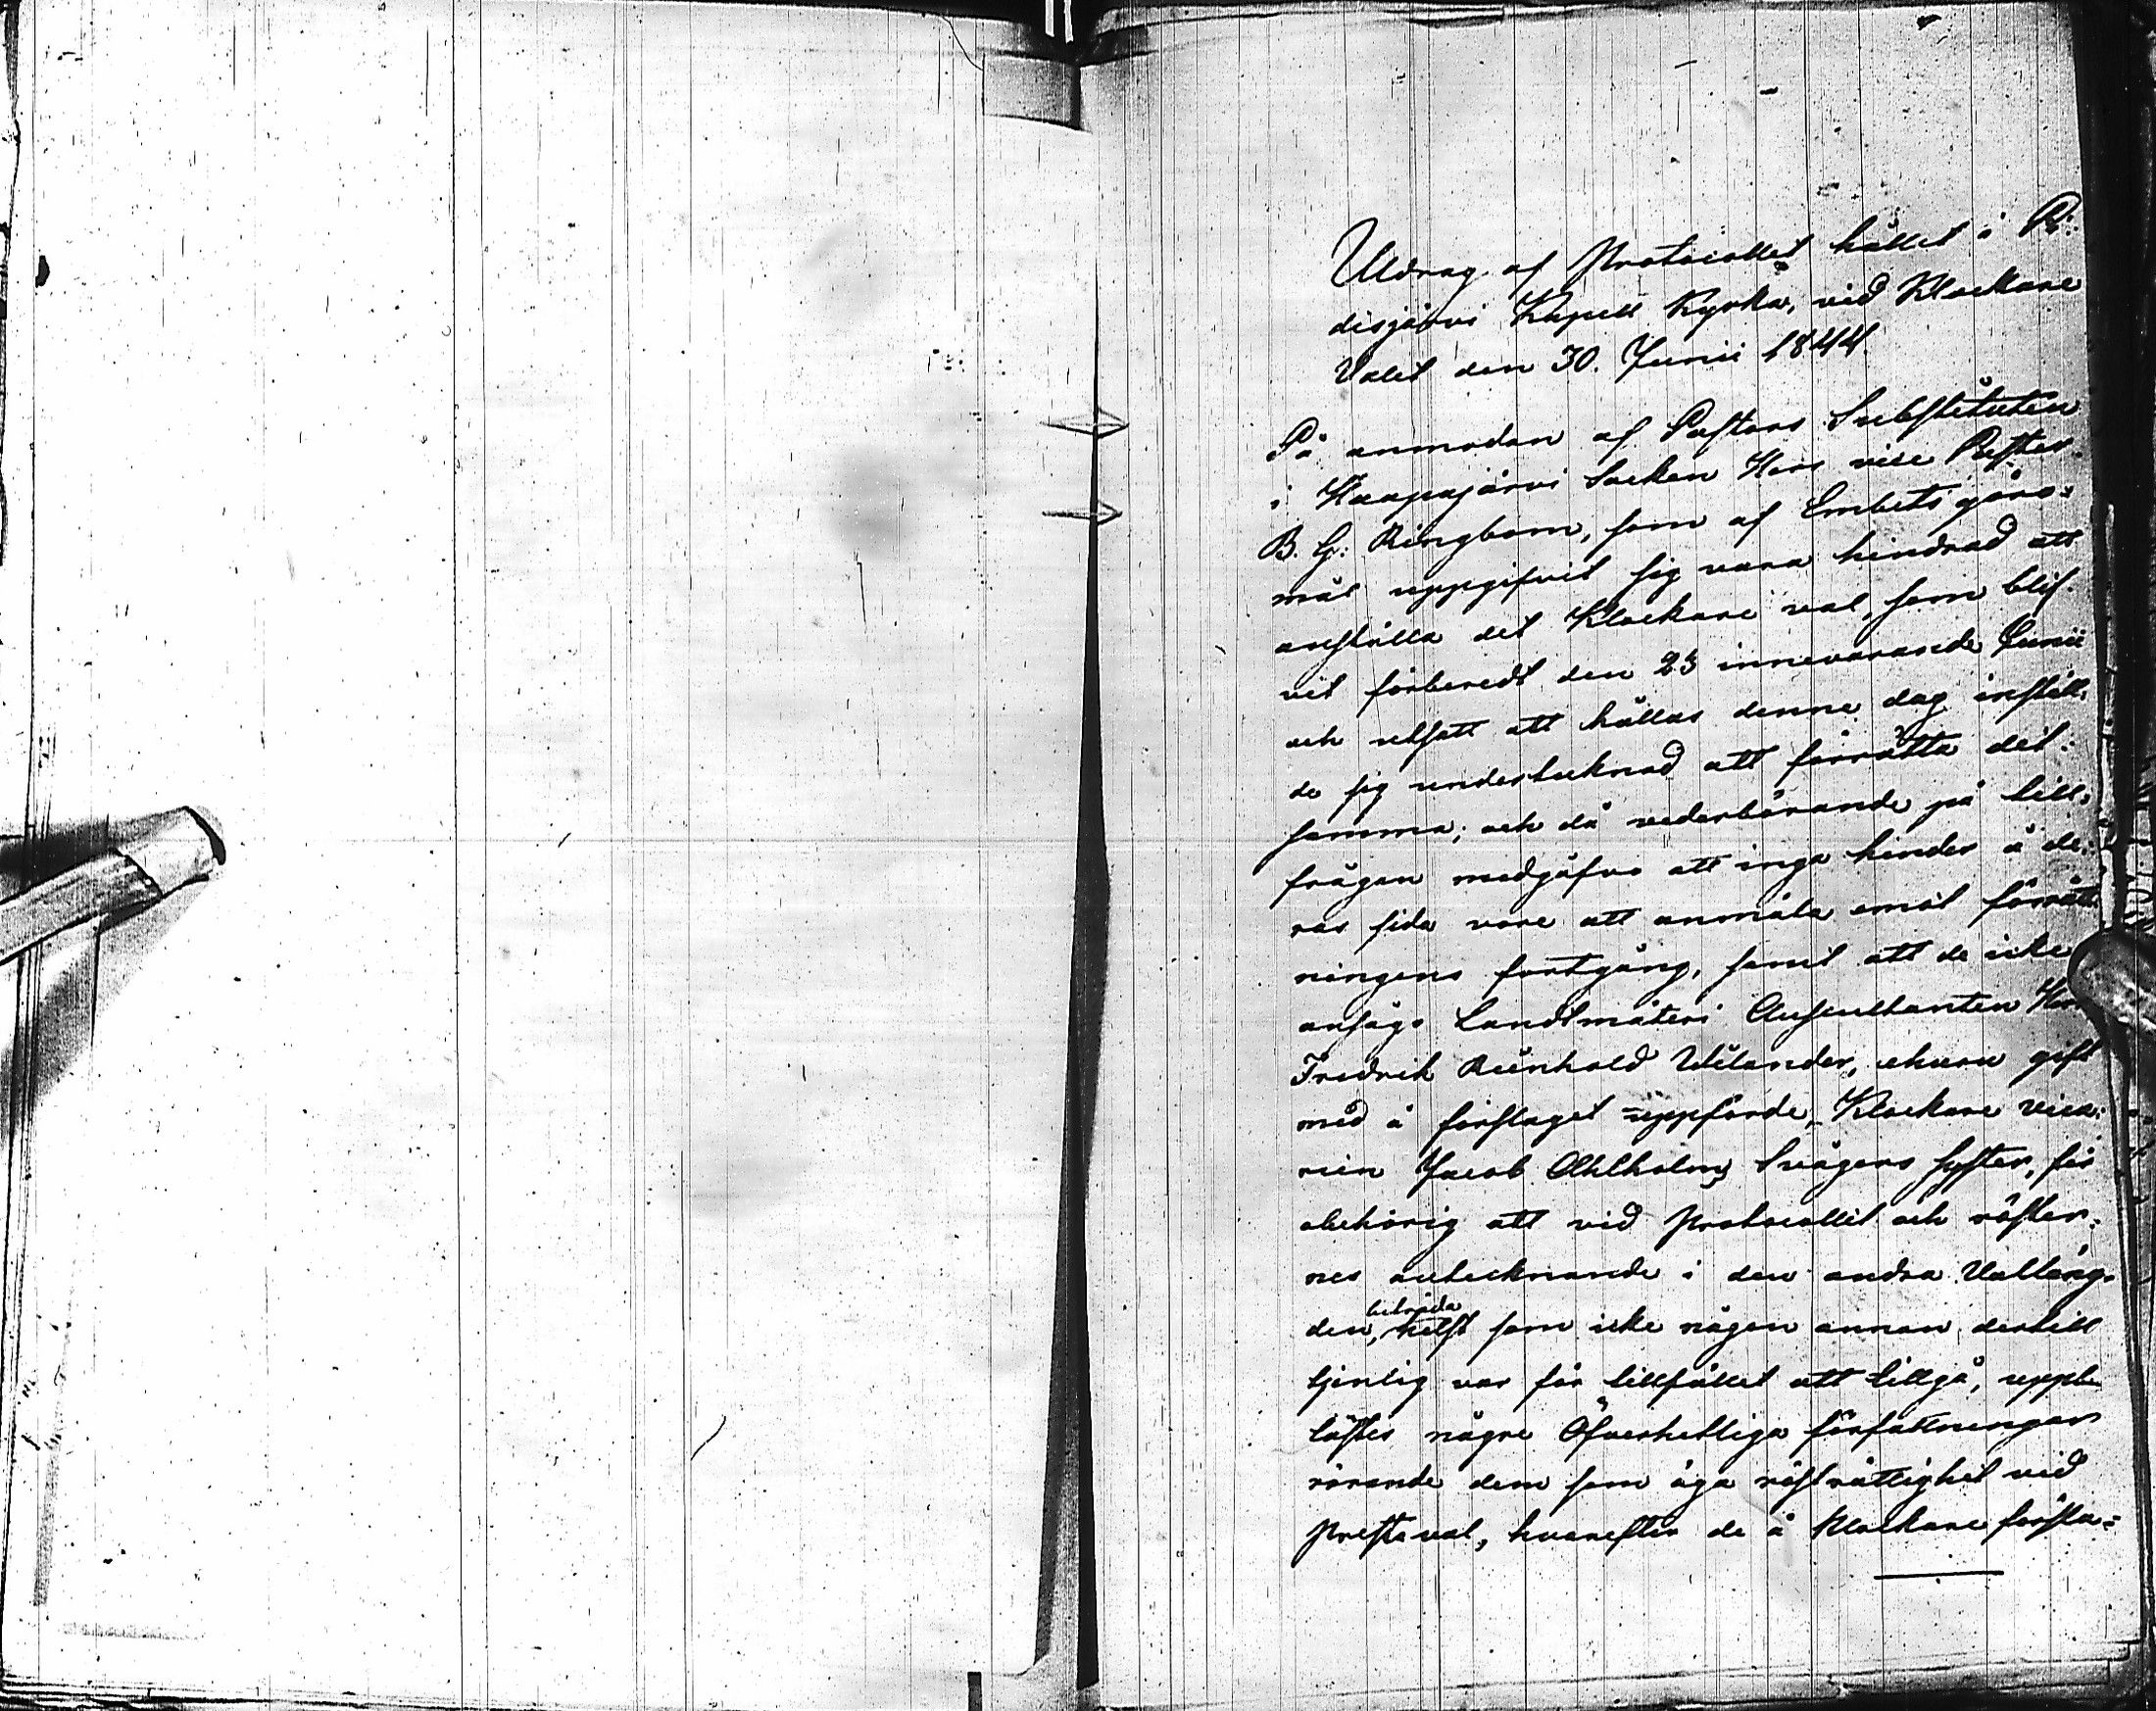 Utdrag af Protocollet hållet i Pi:
disjärvi Kapell Kyrka, vid Klockare
Valet den 30. Junii 1844.
På anmodan af Pastors Substituten
i Haapajärvi Socken Herr vice Pastor
B. G. Ringbom, som af Embets göro-
mål uppgifvit sig vara hindrad att
anställa det Klockare val, som blif-
vit förberedt den 23 innevarande Junii
och utsatt att hållas denne dag instäl-
de sig undertecknad att förrätta det:
samma; och då vederbörande på till-
frågan medgåfvo att inga hinder å de:
ras sida vore att anmäla emot förrätt
ningens fortgång, samt att de icke
ansågo Landtmäteri Auscultanten Herr
Fredrik Reinhold Welander, ehuru gift
med å förslaget uppförde, Klockare vica:
rien Jacob Ahlholms Svågers syster, för
obehörig att vid protocollet och röster-
nes antecknande i den andra Valläng-
den, biträda helst som icke någon annan dertill
tjenlig var för tillfället att tillgå, upplä
lästes någre Öfverhetliga författningar
rörande dem som äga rösträttighet vid
prestaval, hvarefter de å Klockare försla-